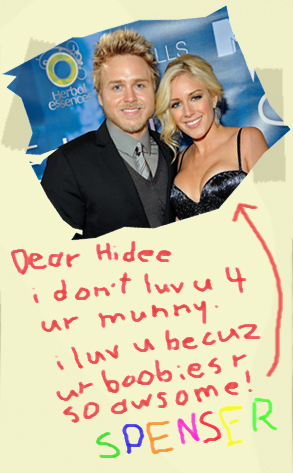 LLS
Herbal
essences
Dear Hidee
i don't luv u 4
ur munny.
i luv u becuz
ur boobies r
so awsome!
SPENSER